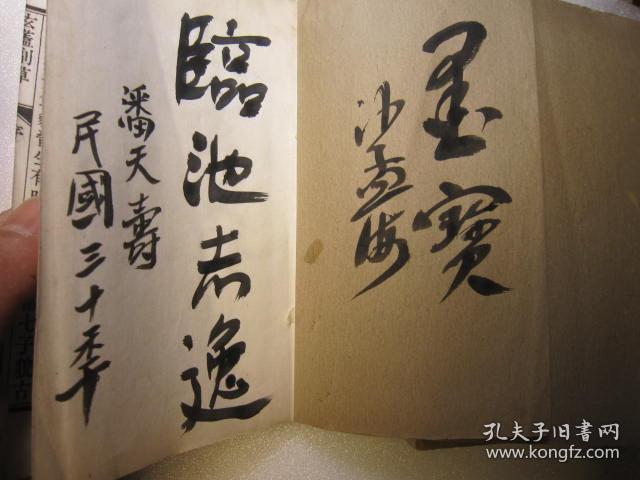 墨寶
沙孟海
臨池志逸
潘天壽
民國三十年
玄蓋副草
孔夫子旧书网
www.kongfz.com